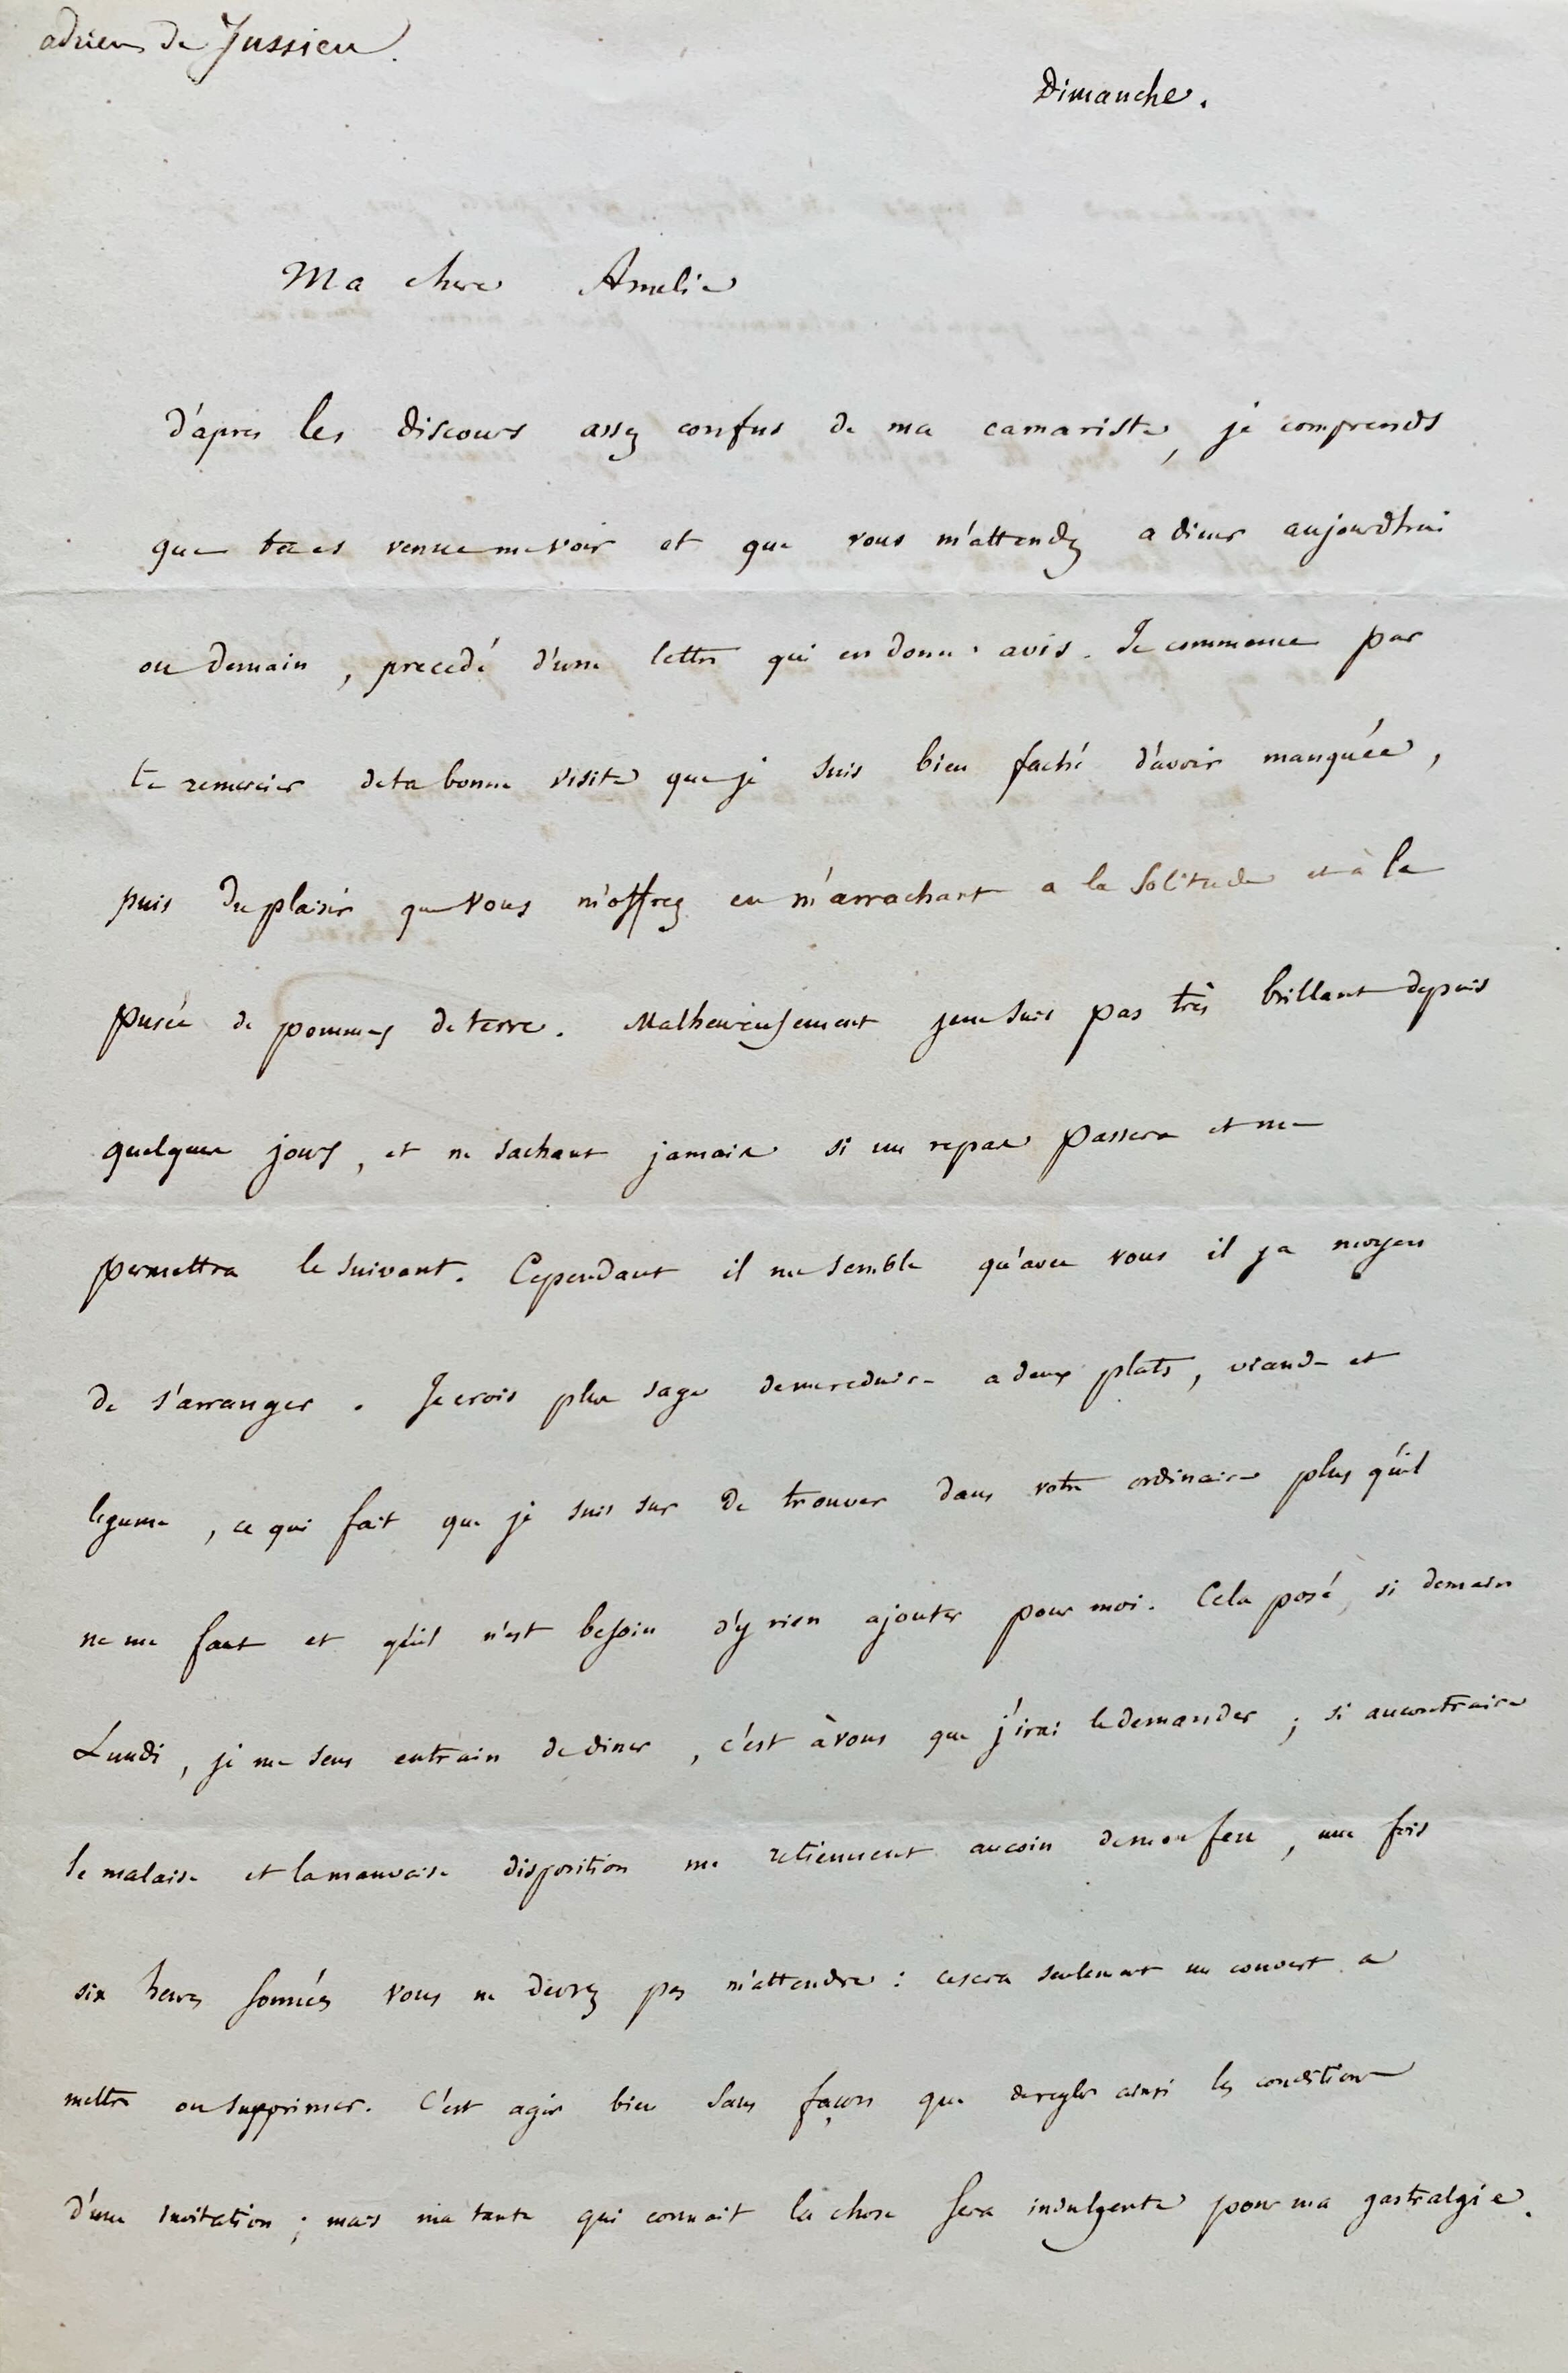 adrien de Jussieu.
Dimanche.
Ma chere Amelie
d'apres les discours assez confus de ma camariste, je comprends
que tu es venue me voir et que vous m'attendez a diner aujourdhui
ou demain, precedé d'une lettre qui en donne avis. Je commence par
te remercier de ta bonne visite que je suis bien faché d'avoir manquée,
puis du plaisir que vous m'offrez en m'arrachant a la solitude et à la
purée de pommes de terre. Malheureusement je ne suis pas très brillant depuis
quelques jours, et ne sachant jamais si un repas passera et me
permettra le suivant. Cependant il me semble qu'avec vous il y a moyen
de s'arranger. Je crois plus sage de me reduire a deux plats, viande et
legume, ce qui fait que je suis sur de trouver dans votre ordinaire plus qu'il
ne me faut et qu'il n'est besoin d'y rien ajouter pour moi. Cela posé, si demain
Lundi, je me sens entrain de diner, c'est à vous que j'irai le demander; si au contraire
le malaise et la mauvaise disposition me retiennent au coin de mon feu, une fois
six heures sonnées vous ne devrez pas m'attendre: ce sera seulement un couvert a
mettre ou supprimer. C'est agir bien sans façon que de regler ainsi les conditions
d'une invitation; mais ma tante qui connait la chose sera indulgente pour ma gastralgie.